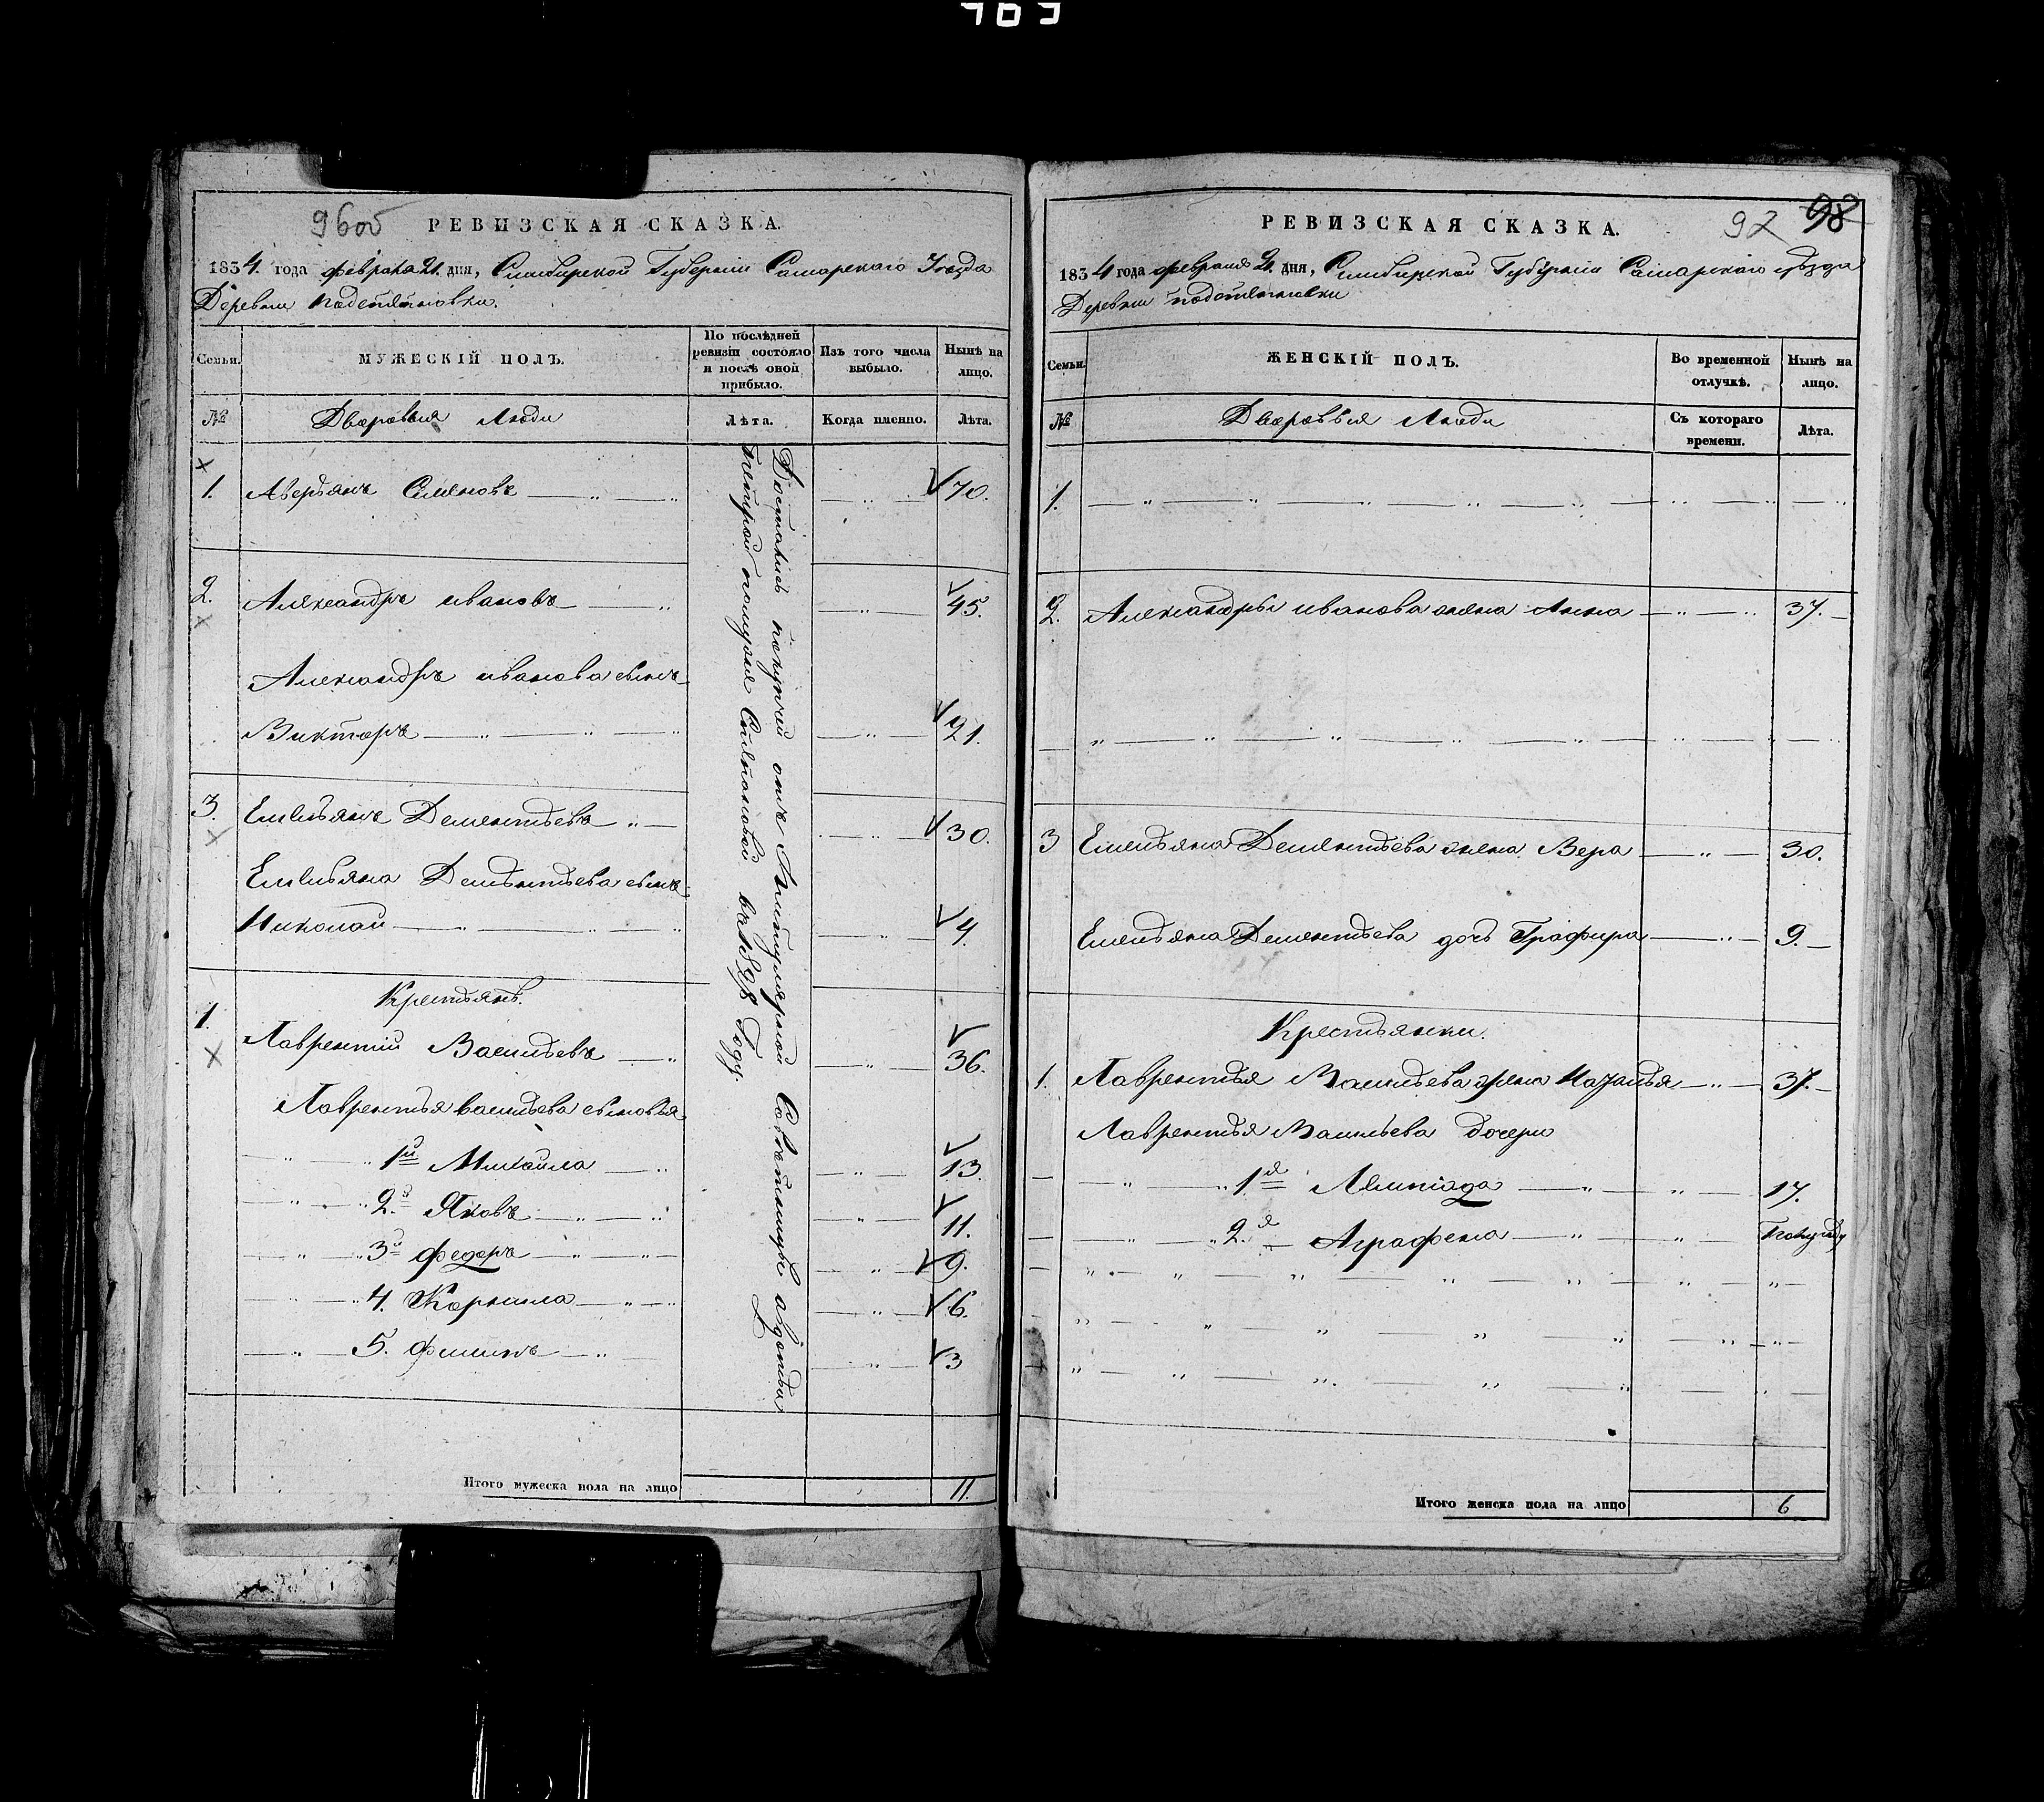 96об
РЕВИЗСКАЯ СКАЗКА.
1834. года февраля 21. дня, Симбирской Губернии Самарскаго Уезда
Деревни Подстепновки.
Семьи.
МУЖЕСКІЙ ПОЛЪ.
По послѣдней ревизіи состояло и послѣ оной прибыло.
Изъ того числа выбыло.
Нынѣ на лицо.
№
Дворовыя Люди
Лѣта.
Когда именно.
Лѣта.
Достались покупкой отъ Титулярной Советницы Авдотьи
Петровой Сталыпиной в 1828 Году.
1. Аверьянъ Семеновъ 70.
2. Александръ Ивановъ 45.
Александръ Иванова сынъ
Викторъ 21.
3. Емельянъ Дементьевъ 30.
Емельяна Дементьева сынъ
Николай 4.
Крестьянъ.
1. Лаврентий Васильевъ 36.
Лаврентья Васильева сыновья
1й Михайла 13.
2й Яковъ 11.
3й Федоръ 9.
4. Корнила 6.
5. Филипъ 3
Итого мужеска пола на лицо 11.
РЕВИЗСКАЯ СКАЗКА.
97 98
1834 года февраля 21. дня, Симбирской Губернии Самарскаго уѣзда
Деревни Подстепновки
Семьи.
ЖЕНСКІЙ ПОЛЪ.
Во временной отлучкѣ.
Нынѣ на лицо.
№
Дворовыя Люди
Съ котораго времени.
Лѣта.
1.
2. Александры Иванова жена Анна 37.
3 Емельяна Дементьева жена Вера 30.
Емельяна Дементьева дочь Графира 9.
Крестьянки.
1. Лаврентья Васильева жена Наталья 37.
Лаврентья Васильева дочери
1я Лемпіада 17.
2я Аграфена Полугоду
Итого женска пола на лицо 6